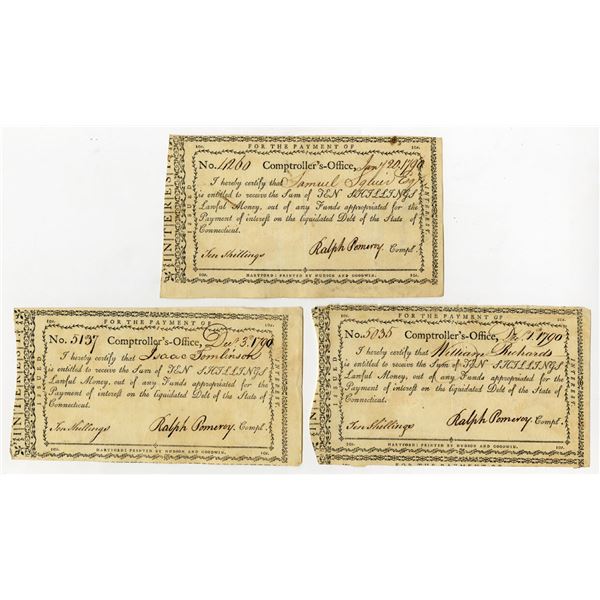 10s. FOR THE PAYMENT OF 10s.
No. 4260 Comptroller's-Office, Jany 20 1790
I hereby certify that Samuel Esqr
is entitled to receive the Sum of TEN SHILLINGS
Lawful Money, out of any Funds appropriated for the
Payment of interest on the liquidated Debt of the State of
Connecticut.
Ten Shillings Ralph Pomeroy Compt.
10s. HARTFORD: PRINTED BY HUDSON AND GOODWIN. 10s.
ISSUED
INTEREST
10s. FOR THE PAYMENT OF 10s.
No. 5137 Comptroller's-Office, Decr 3. 1790
I hereby certify that Isaac Tomlinson
is entitled to receive the Sum of TEN SHILLINGS
Lawful Money, out of any Funds appropriated for the
Payment of interest on the liquidated Debt of the State of
Connecticut.
Ten Shillings Ralph Pomeroy, Compt.
10s. HARTFORD: PRINTED BY HUDSON AND GOODWIN. 10s.
ISSUED
INTEREST
10s. FOR THE PAYMENT OF 10s.
No. 5035 Comptroller's-Office, 1. 1790
I hereby certify that William Richards
is entitled to receive the Sum of TEN SHILLINGS
Lawful Money, out of any Funds appropriated for the
Payment of interest on the liquidated Debt of the State of
Connecticut.
Ten Shillings Ralph Pomeroy, Compt.
10s. HARTFORD: PRINTED BY HUDSON AND GOODWIN. 10s.
FOR THE PAYMENT OF
ISSUED
INTEREST